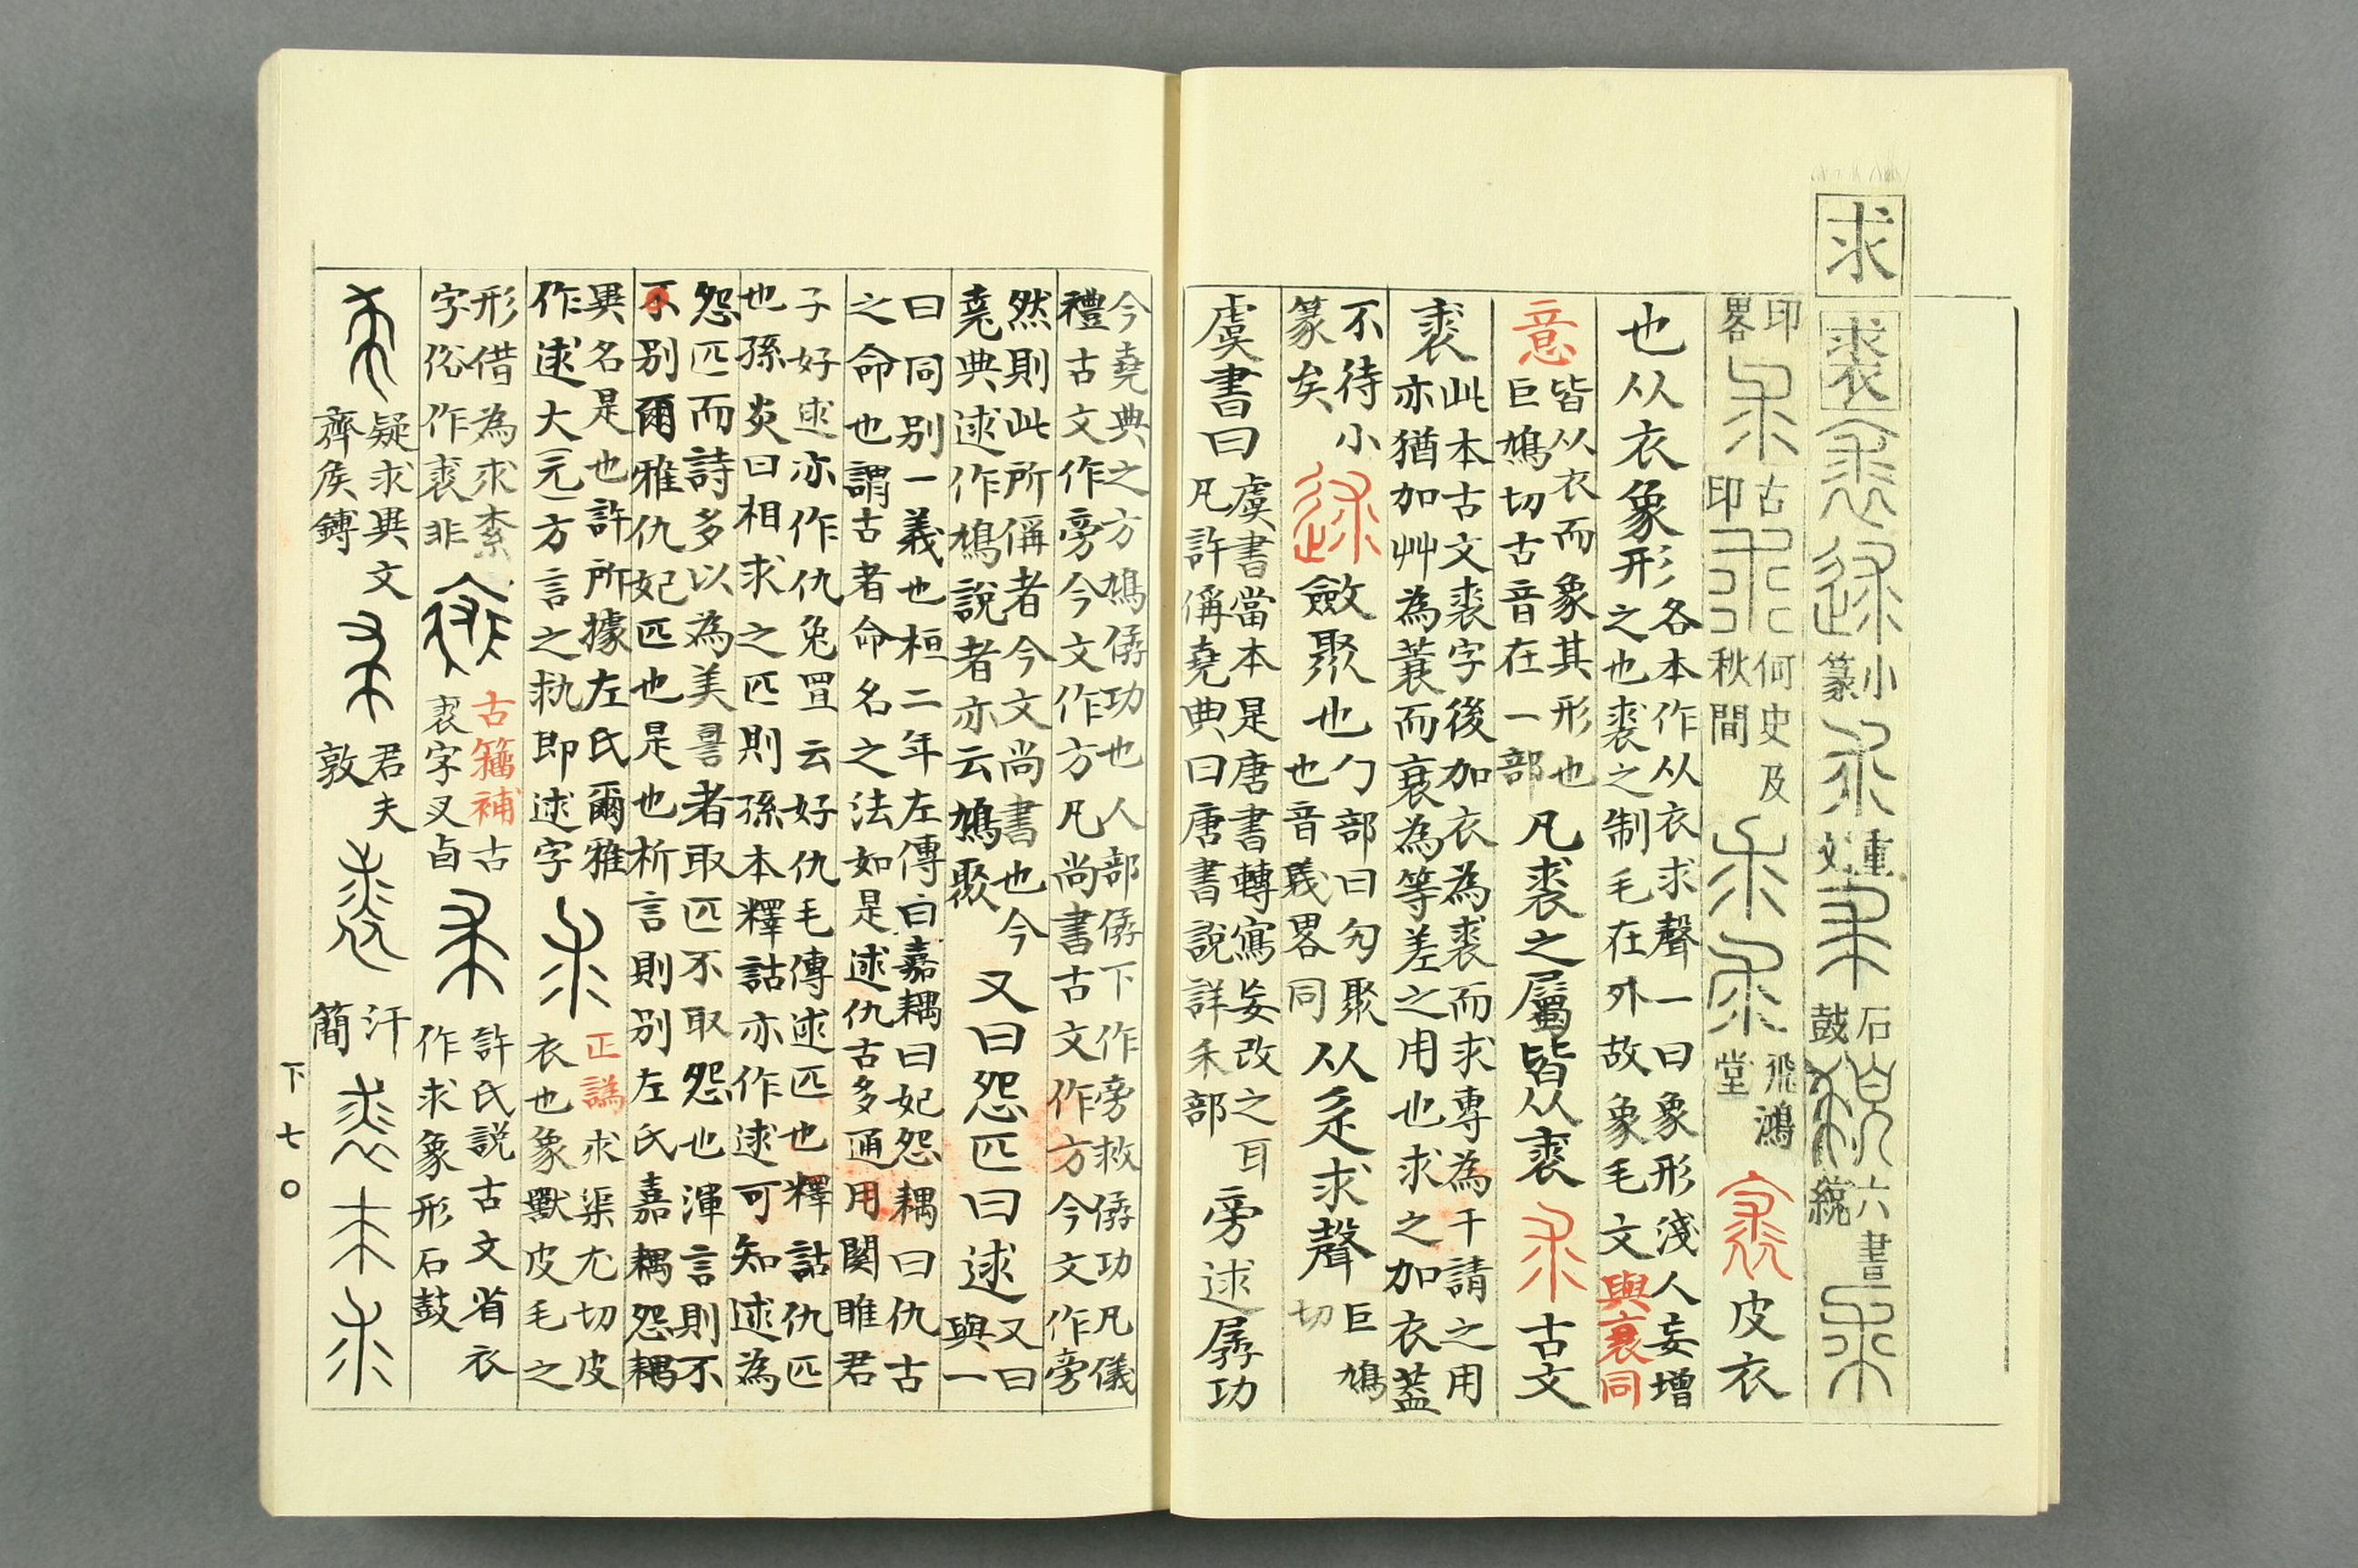 求
裘
小篆
重文
石鼓
六書統
印畧
古印
何史及秋閒
飛鴻堂
皮衣
也从衣象形各本作从衣求聲一曰象形淺人妄增之也裘之制毛在外故象毛文與衰同
意皆从衣而象其形也巨鳩切古音在一部凡裘之屬皆从裘
古文
裘此本古文裘字後加衣為裘而求專為干請之用亦猶加艸為蓑而衰為等差之用也求之加衣蓋
不待小篆矣
斂聚也勹部曰勼聚也音義畧同从辵求聲巨鳩切
虞書曰虞書當本是唐書轉寫妄改之耳凡許偁堯典曰唐書說詳禾部旁逑孱功
今堯典之方鳩僝功也人部僝下作旁救僝功凡儀禮古文作旁今文作方凡尚書古文作方今文作旁
然則此所偁者今文尚書也今堯典逑作鳩說者亦云鳩聚又曰怨匹曰逑又曰與一
曰同別一義也桓二年左傳曰嘉耦曰妃怨耦曰仇古之命也謂古者命名之法如是逑仇古多通用關雎君
子好逑亦作仇兔罝云好仇毛傳逑匹也釋詁仇匹也孫炎曰相求之匹則孫本釋詁亦作逑可知逑為
怨匹而詩多以為美詈者取匹不取怨也渾言則不別爾雅仇妃匹也是也析言則別左氏嘉耦怨耦
不
異名是也許所據左氏爾雅作逑大元方言之執即逑字
正譌求渠尤切皮衣也象獸皮毛之
形借為求索字俗作裘非
古籀補古裘字叉卣
許氏説古文省衣作求象形石鼓
疑求異文齊侯鎛
君夫敦
汗簡
下七〇